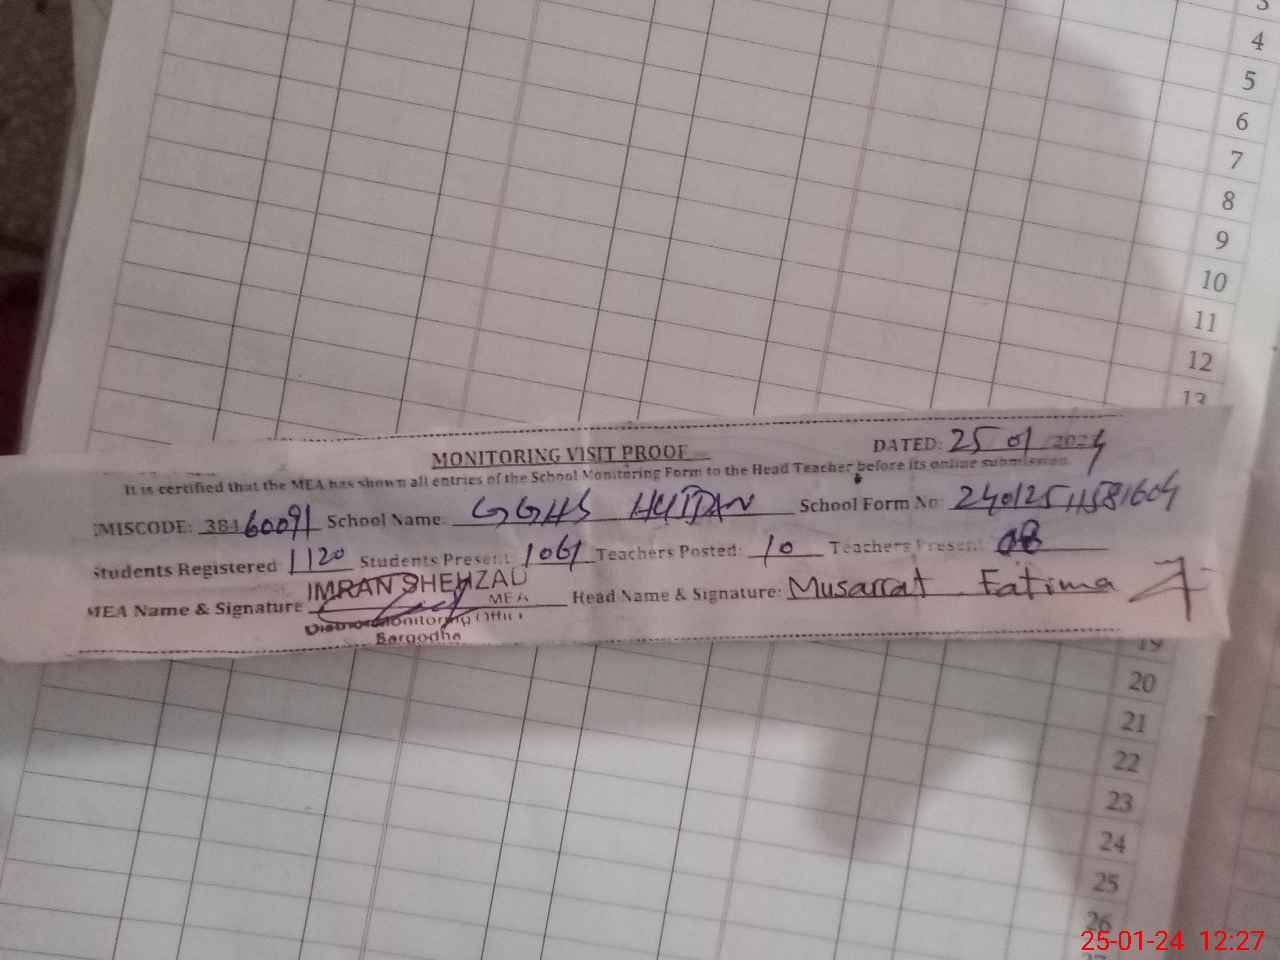 3
4
5
6
7
8
9
10
11
12
13
MONITORING VISIT PROOF DATED: 25 01 2024
It is certified that the MEA has shown all entries of the School Monitoring Form to the Head Teacher before its online submission.
EMISCODE: 38460091 School Name: GGHS School Form No: 240125
Students Registered: 1120 Students Present: 1061 Teachers Posted: 10 Teachers Present: 08
MEA Name & Signature IMRAN SHEHZAD Head Name & Signature: Musarrat Fatima
MEA
District Monitoring Office
Sargodha
19
20
21
22
23
24
25
26
25-01-24 12:27